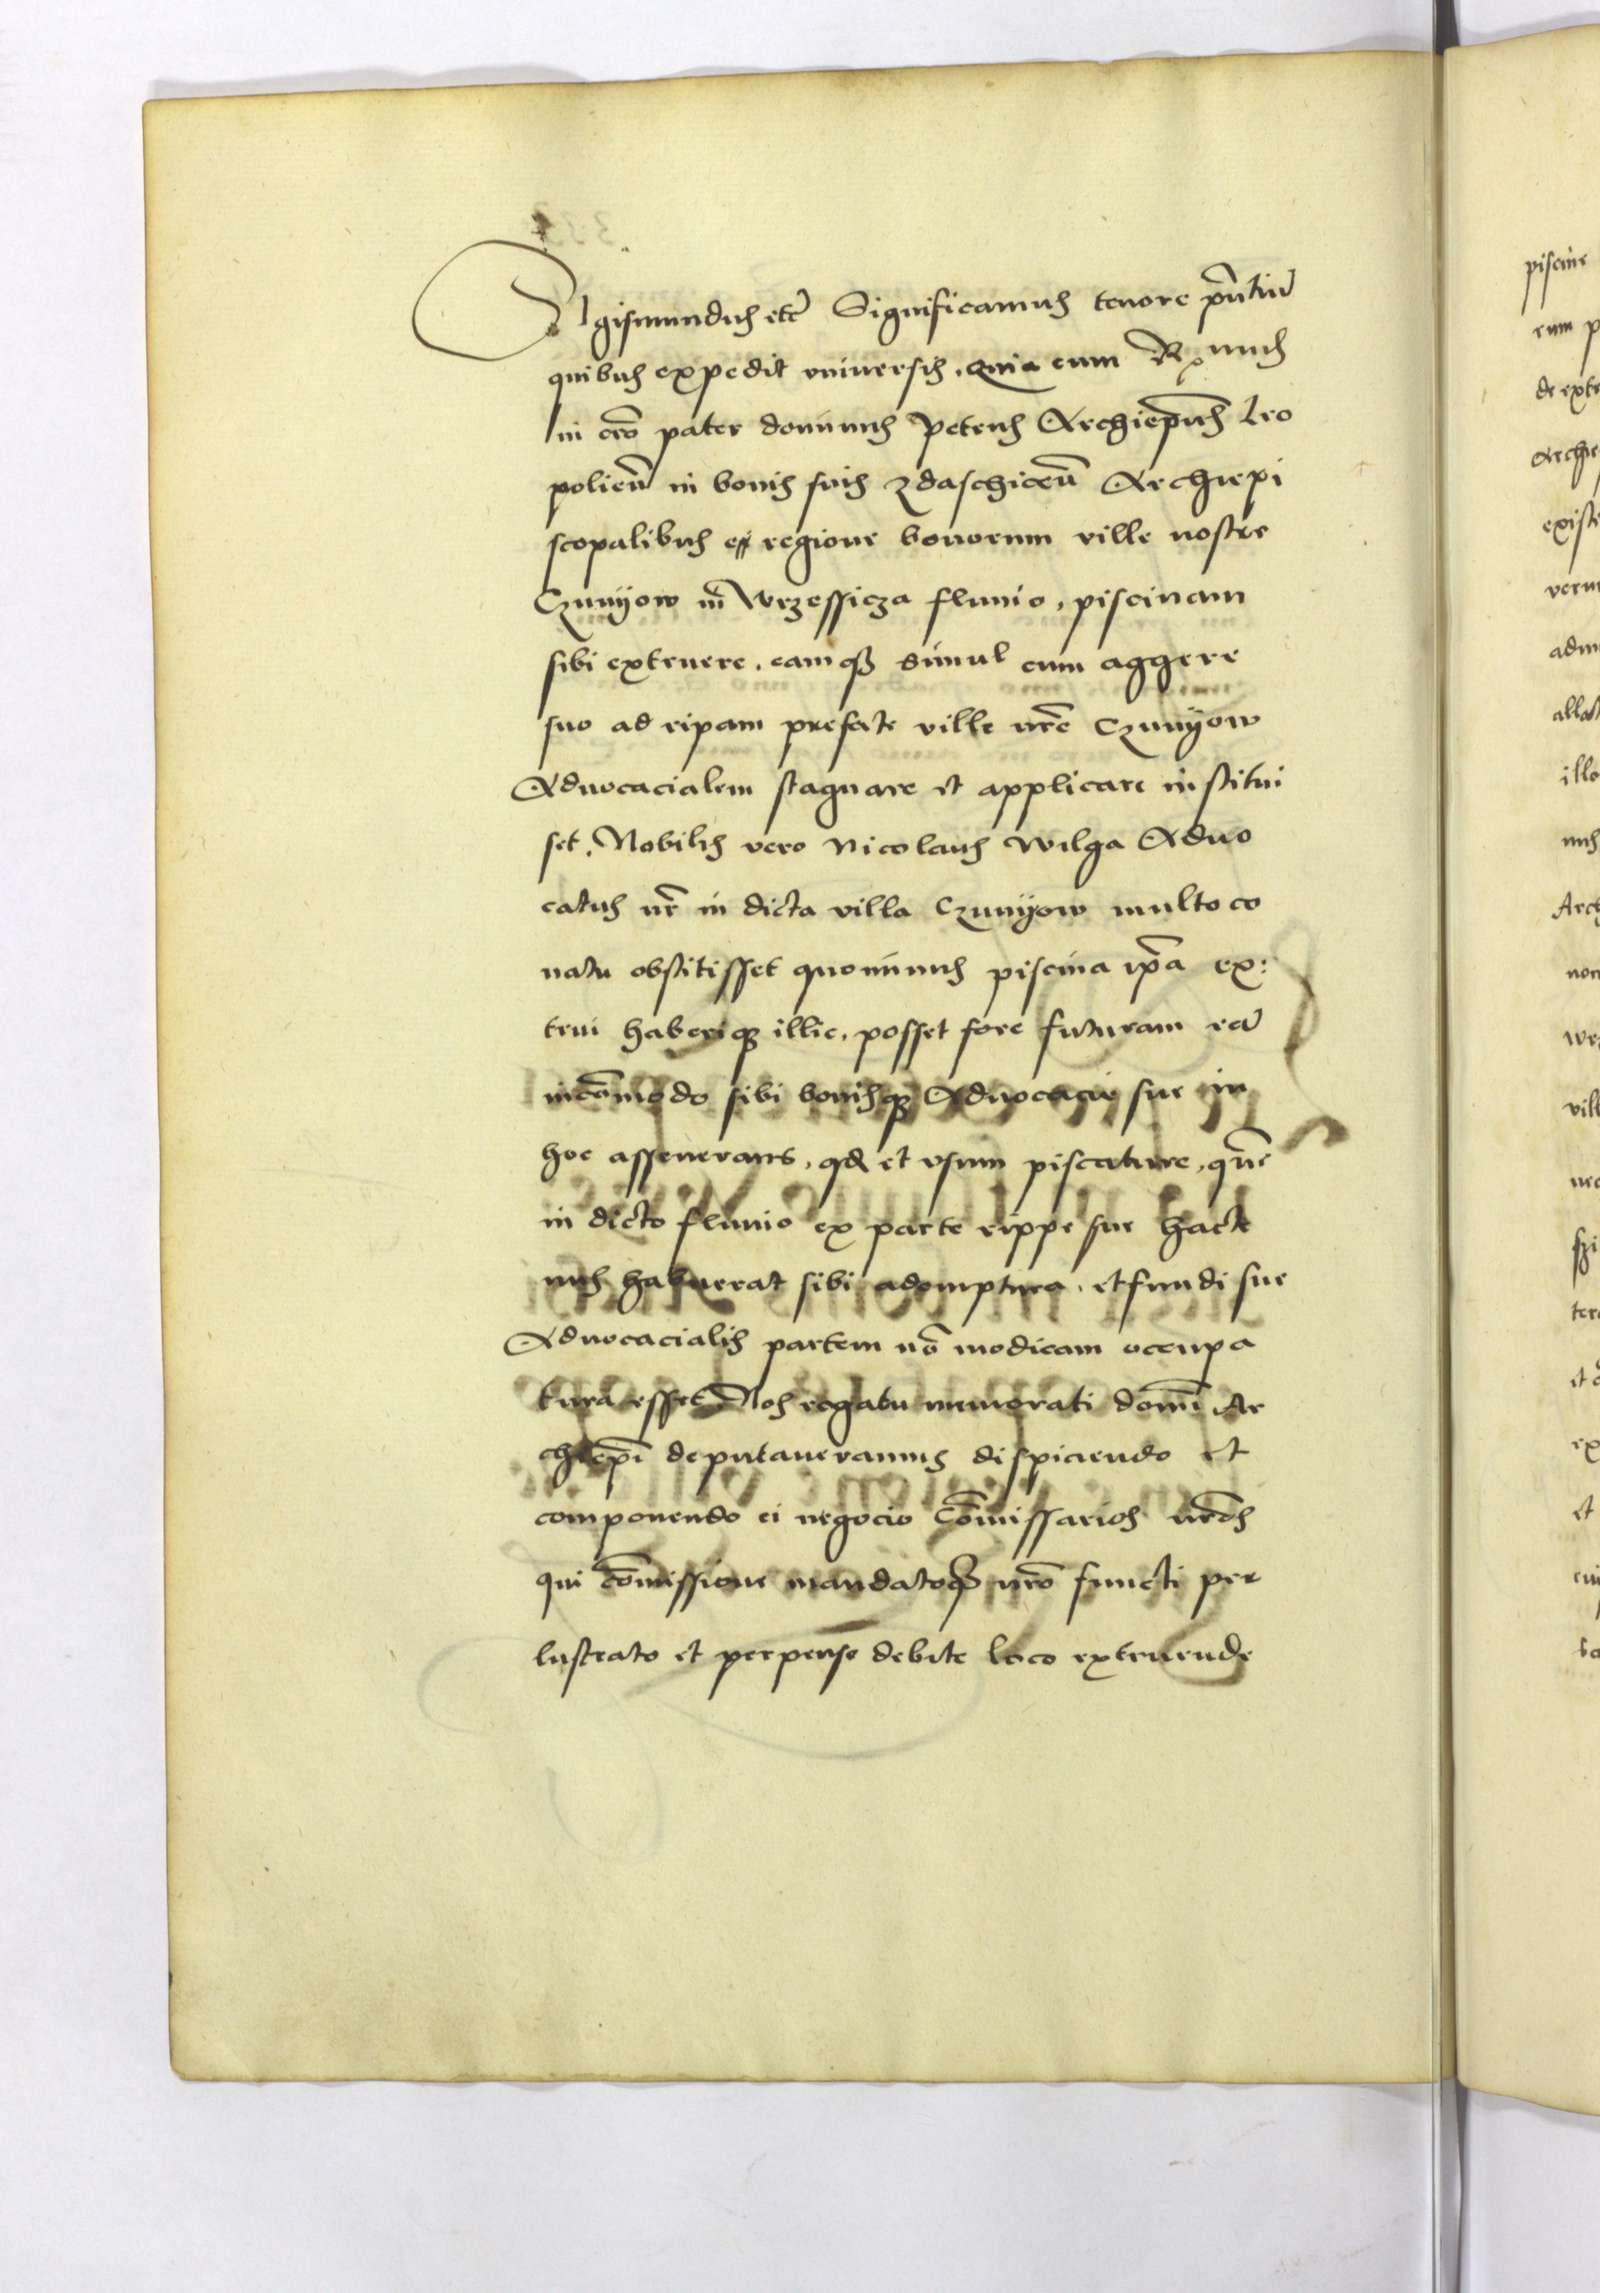 Sigismundus etc̄ Significamus tenore pn̄tiū
quibus expedit vniuersis, quia cum Rx̄mus
in cr̄o pater dominus Petrus Archiepūs Leo
polien̄ in bonis suis zdaschiceū Archiepi
scopalibus ex regione bonorum ville nostre
Czunyow in Wrzessicza fluuio, piscinam
sibi extruere, eamqȝ simul cum aggere
suo ad ripam prefate ville nr̄e Czunyow
Aduocacialem stagnare et applicare institui
set. Nobilis vero Nicolaus Wilga Aduo
catus nr̄ in dicta villa Czunyow multo co
natu obstitisset quominus piscina ip̄a ex:
trui haberiqȝ illic, posset fore futuram eā
incōmodo sibi bonisqȝ Aduocacie sue in
hoc asseuerans, qd et vsum piscature, quē
in dicto fluuio ex parte rippe sue hacte
nus habuerat sibi adomptura, et fundi sue
Aduocacialis partem nō modicam occupa
tura esset Nos rogatu memorati domi Ar
chiepī deputaueramus dispiciendo et
componendo ei negocio Cōmissarios nr̄os
qui cōmissione mandatoqȝ nr̄o functi per
lustrato et perpenso debite loco extruende
piscine
cum p
de extr
Archie
existe
verum
adm
allat
illo
nus
Arch
non
wrz
vill
nec
szi
terc
et c
ex
et
cui